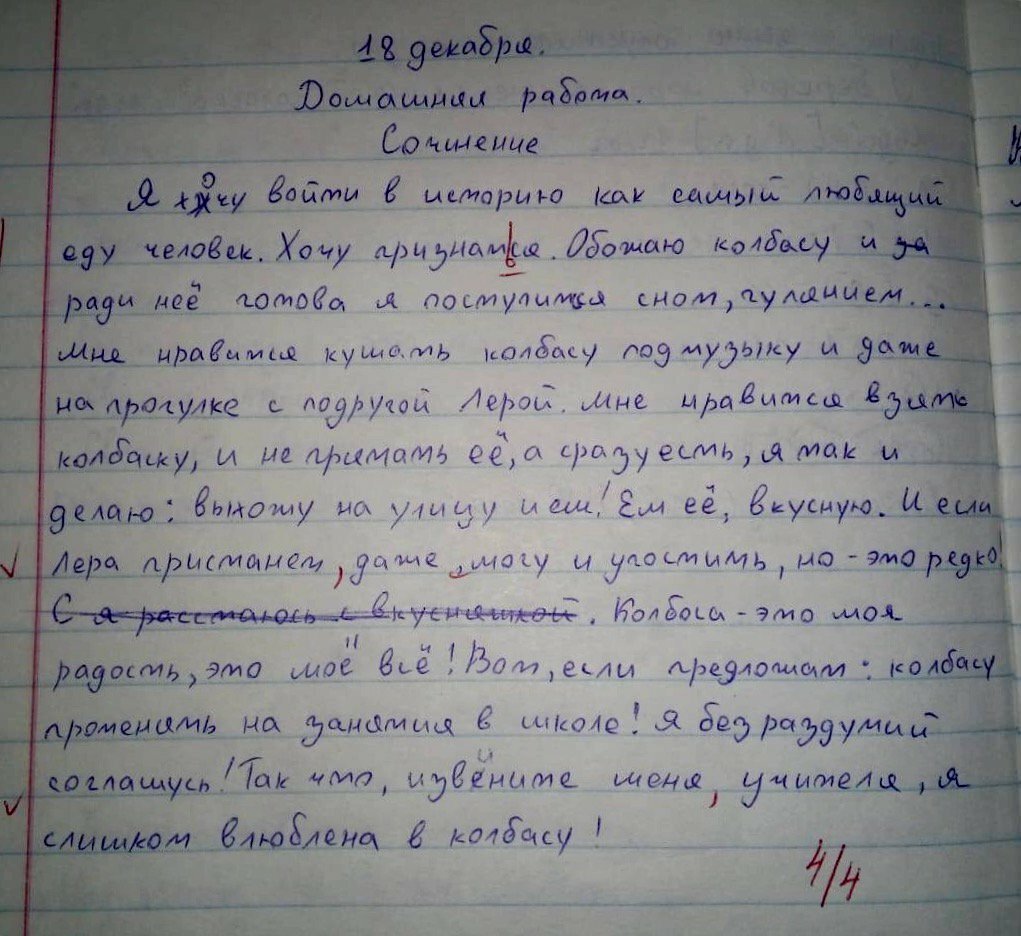 18 декабря.
Домашняя работа.
Сочинение
Я хочу войти в историю как самый любящий
еду человек. Хочу признаться. Обожаю колбасу и за
ради неё готова я поступится сном, гулянием...
Мне нравится кушать колбасу под музыку и даже
на прогулке с подругой Лерой. Мне нравится взять
колбаску, и не прятать её, а сразу есть, я так и
делаю: выхожу на улицу и ем! Ем её, вкусную. И если
Лера пристанет, даже, могу и угостить, но - это редко!
С я расстаюсь с вкусняшкой. Колбаса - это моя
радость, это моё всё! Вот, если предложат: колбасу
променять на занятия в школе! Я без раздумий
соглашусь! Так что, извините меня, учителя, я
слишком влюблена в колбасу!
4/4